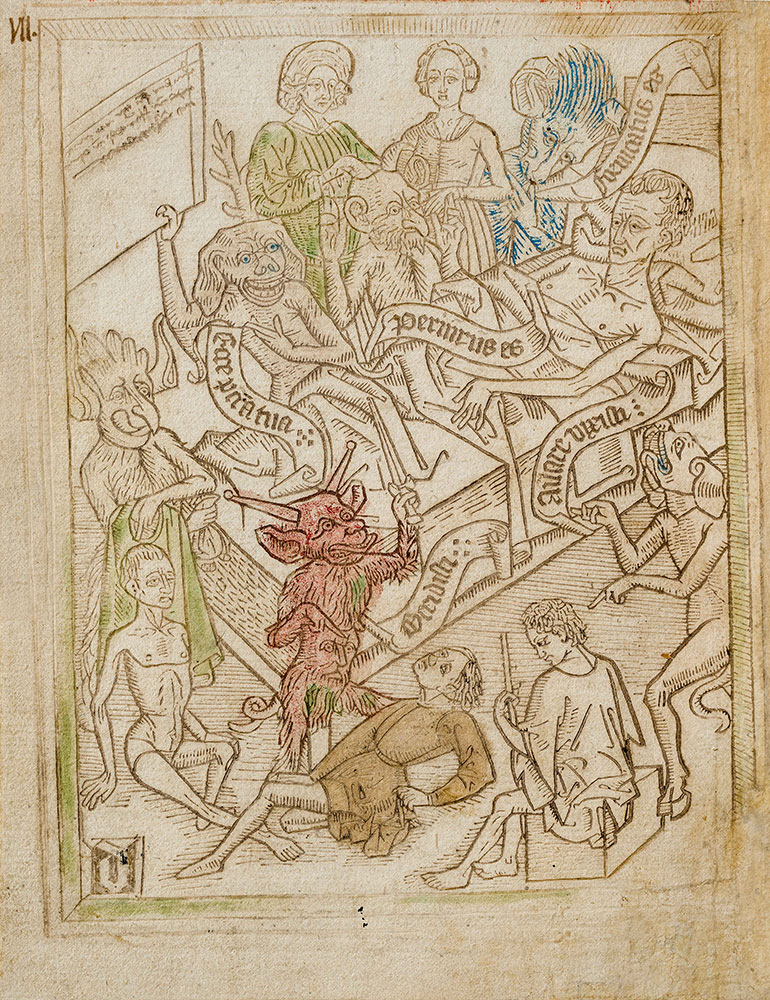 VII.
fornicatus es
Periurus es
Ecce pc̄ata tua
Auare vixisti
Occidisti